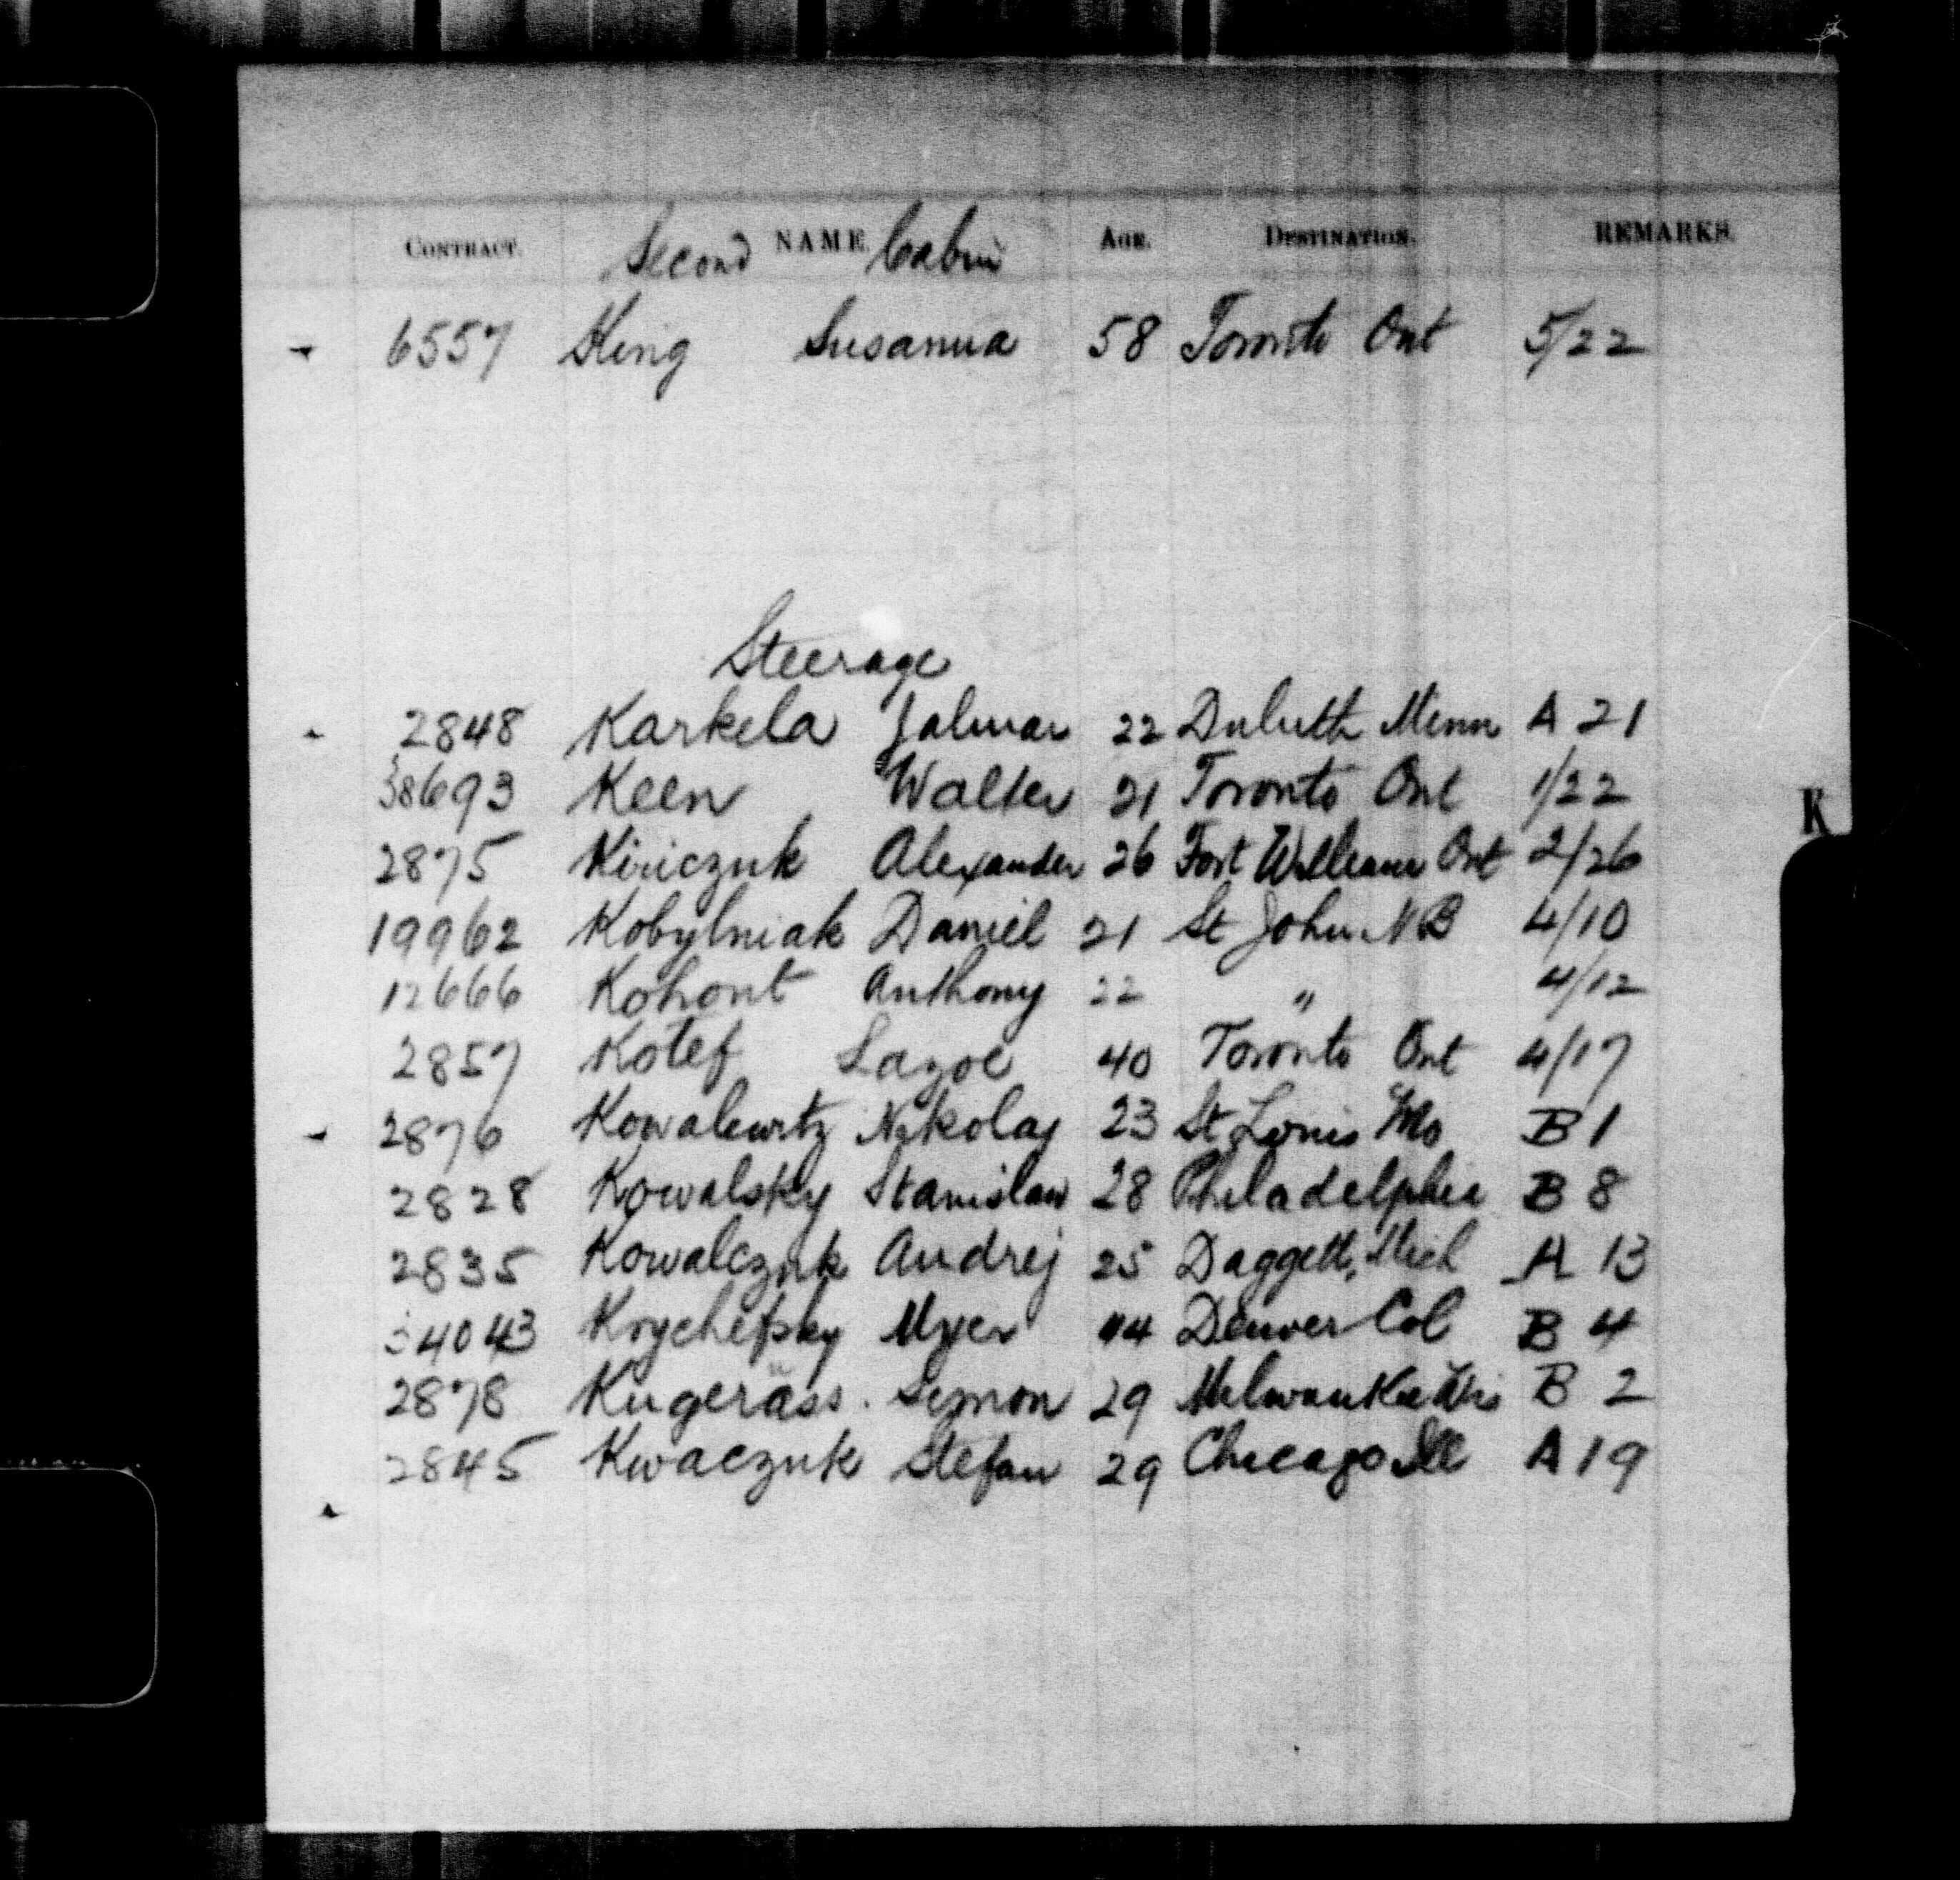 CONTRACT. NAME. AGE. DESTINATION. REMARKS.
Second Cabin
6557 King Susanna 58 Toronto Ont 5/22
Steerage
2848 Karkela Jalmar 22 Duluth Minn A 21
38693 Keen Walter 21 Toronto Ont 1/22
K
2875 Kiriczuk Alexander 26 Fort William Ont 2/26
19962 Kobylniak Daniel 21 St John NB 4/10
12666 Kohont Anthony 22 " 4/12
2857 Kotef Lazoe 40 Toronto Ont 4/17
2876 Kowalewitz Nikolay 23 St Louis Mo B 1
2828 Kowalsky Stanislaw 28 Philadelphia B 8
2835 Kowalczuk Andrej 25 Daggett, Mich A 13
34043 Krychefsky Myer 44 Denver Col B 4
2878 Kugerass. Symon 29 Milwaukee Wis B 2
2845 Kwaczuk Stefan 29 Chicago Ill A 19